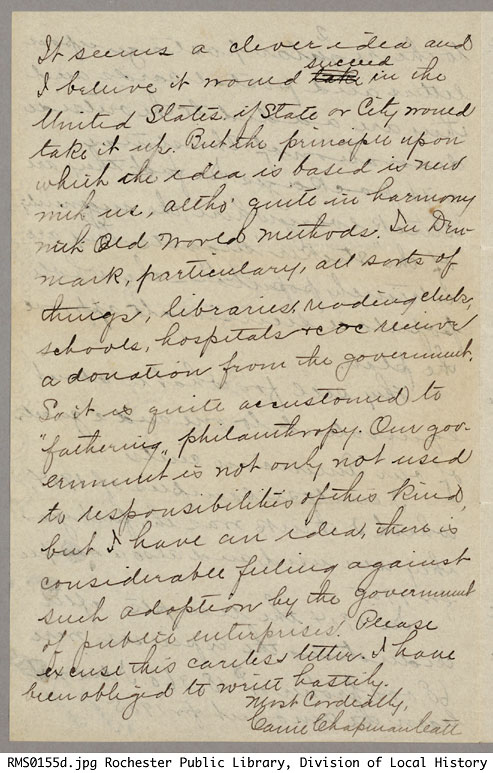 It seems a clever idea and
I believe it would succeed take in the
United States, if State or City would
take it up. But the principle upon
which the idea is based is new
with us, altho' quite in harmony
with Old World methods. In Den-
mark, particularly, all sorts of
things, libraries, reading clubs,
schools, hospitals &c &c receive
a donation from the government.
So it is quite accustomed to
"fathering" philanthropy. Our gov-
ernment is not only not used
to responsibilities of this kind,
but I have an idea, there is
considerable feeling against
such adoption by the government
of public enterprises. Please
excuse this careless letter. I have
been obliged to write hastily.
Most Cordially,
Carrie Chapman Catt
RMS0155d.jpg Rochester Public Library, Division of Local History